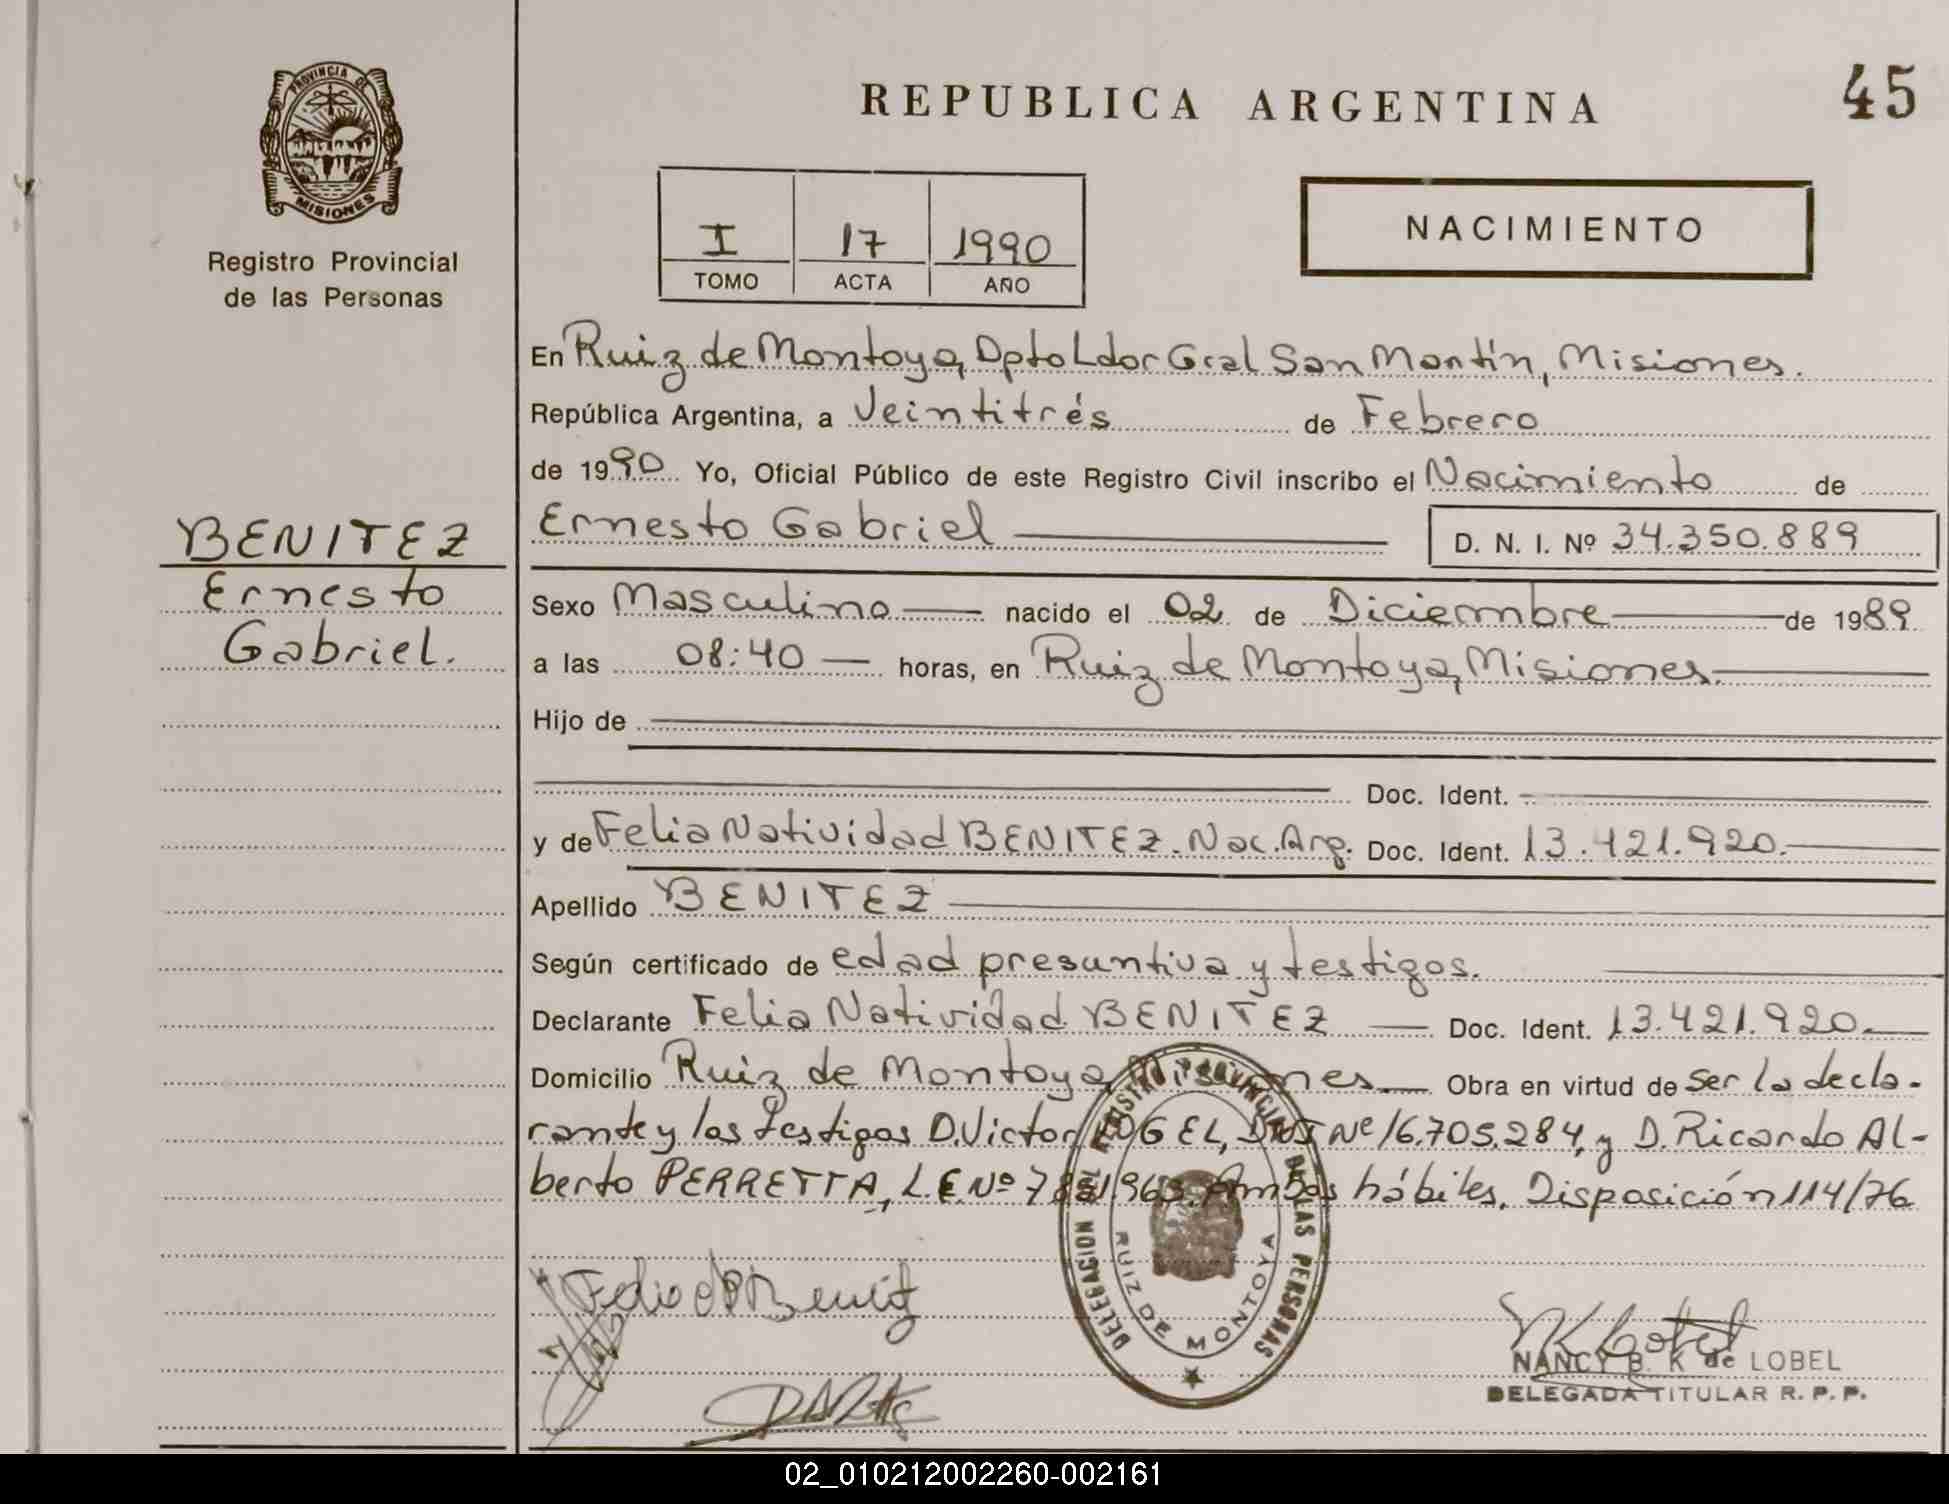 PROVINCIA DE
MISIONES
Registro Provincial
de las Personas
REPUBLICA ARGENTINA
45
I 17 1990
TOMO ACTA AÑO
NACIMIENTO
En Ruiz de Montoya, Dpto Ldor Gral San Martín, Misiones.
República Argentina, a Veintitrés de Febrero
de 1990 Yo, Oficial Público de este Registro Civil inscribo el Nacimiento de
BENITEZ
Ernesto
Gabriel.
Ernesto Gabriel D. N. I. Nº 34.350.889
Sexo Masculino nacido el 02 de Diciembre de 1989
a las 08:40 horas, en Ruiz de Montoya, Misiones.
Hijo de
Doc. Ident.
y de Felia Natividad BENITEZ. Nac. Arg. Doc. Ident. 13.421.920.
Apellido BENITEZ
Según certificado de edad presuntiva y testigos.
Declarante Felia Natividad BENITEZ Doc. Ident. 13.421.920.
Domicilio Ruiz de Montoya, Misiones Obra en virtud de ser la decla-
rante y los testigos D. Victor DNI Nº 16.705.284, y D. Ricardo Al-
berto PERRETTA, L.E. Nº Ambos hábiles. Disposición 114/76
DELEGACION DEL REGISTRO PROVINCIAL DE LAS PERSONAS
RUIZ DE MONTOYA
NANCY B. K de LOBEL
DELEGADA TITULAR R. P. P.
02_010212002260-002161